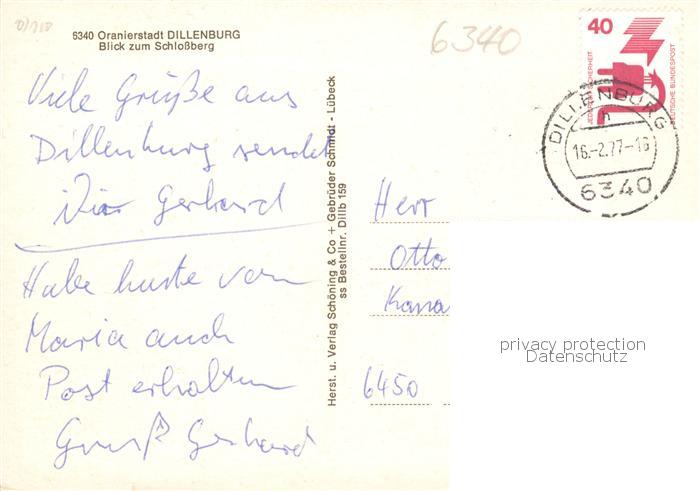 6340 Oranierstadt DILLENBURG
Blick zum Schloßberg
Viele Grüße aus
Dillenburg sendet
Dir Gerhard
Habe heute von
Maria auch
Post erhalten
Gruß Gerhard
Herst. u. Verlag Schöning & Co + Gebrüder Schmidt - Lübeck
ss Bestellnr. Dillb 159
6340
40
DEUTSCHE BUNDESPOST
DILLENBURG
h
16.-2.77-16
6340
Herr
Otto
Kana
6450
privacy protection
Datenschutz